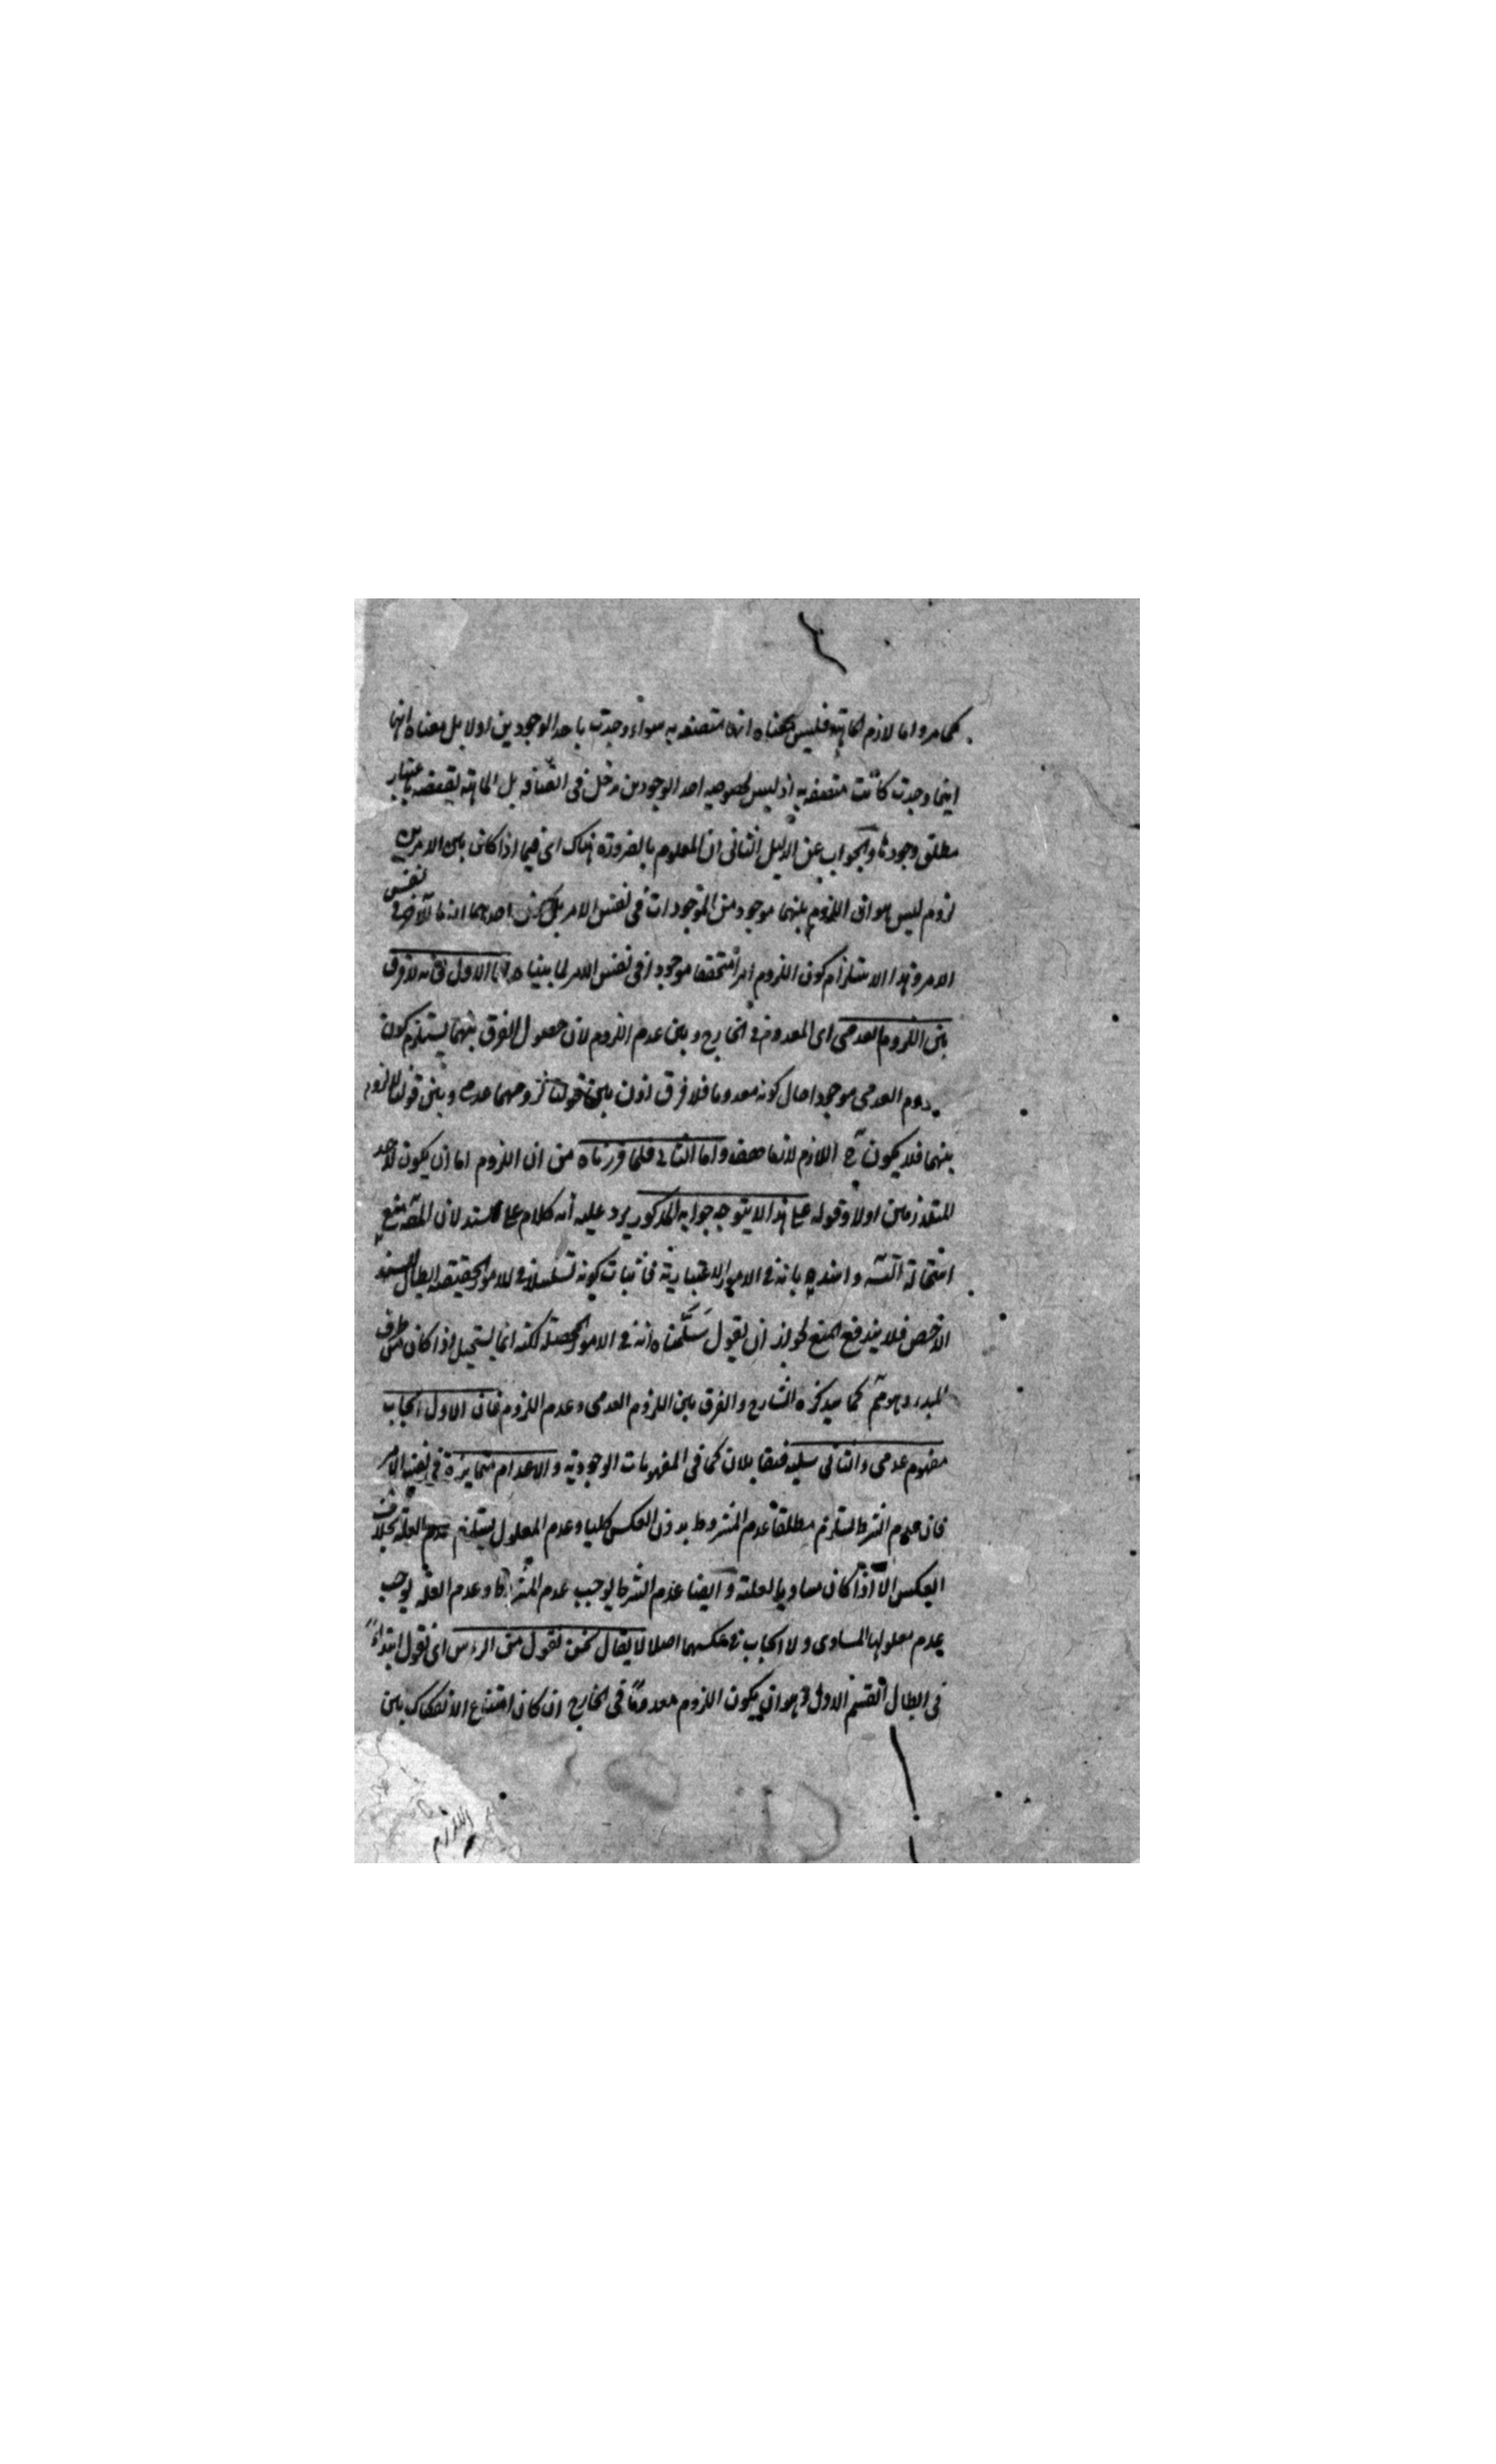 كما مر واما لازم الماهية فليس معناه انها متصفه به سواء وجدت باحد الوجودين اولا بل معناه انها
اينما وجدت كانت متصفه به اذ ليس لخصوصيه احد الوجودين مدخل فى اتصافه بل الماهية تقتضيه باعتبار
مطلق وجودها والجواب عن الدليل الثانى ان المعلوم بالضرورة هناك اى فيما اذا كان بين الامرين
لزوم ليس هو ان اللزوم بينهما موجود من الموجودات فى نفس الامر بل كون احدهما لازما للآخر فى نفس
الامر وهذا لا استلزام كون اللزوم امرا متحققا موجودا فى نفس الامر لما بيناه اما الاول فانه لا فرق
بين اللزوم العدمى اى المعدوم فى الخارج وبين عدم اللزوم لان حصول الفرق بينهما يستلزم كون
العدمى موجودا حال كونه معدوما فلا فرق اذن بين قولنا لزومهما عدمى وبين قولنا لا لزوم
بينهما فلا يكون اللازم لازما هف واما الثانى فلما قررناه من ان اللزوم اما ان يكون لاحد
المتلازمين اولا وقوله على هذا لا يتوجه جوابه المذكور يرد عليه انه كلام على السند لان المقصود منع
استحالة التسلسل واسنده بانه فى الامور الاعتبارية فاثبات كونه تسلسلا فى الامور الحقيقيه ابطال للسند
الاخص فلا يندفع المنع لجواز ان يقول سلمناه انه فى الامور المحصلة لكنه انما يستحيل اذا كان من طرف
المبدء وهو ثم كما سيذكره الشارح والفرق بين اللزوم العدمى وعدم اللزوم فان الاول ايجاب
مفهوم عدمى والثانى سلبه فيتقابلان كما فى المفهومات الوجودية والاعدام متمايزة فى نفس الامر
فان عدم الشرط يستلزم مطلقا عدم المشروط بدون العكس كليا وعدم المعلول يستلزم عدم العلة بخلاف
العكس الا اذا كان مساويا لعلته وايضا عدم الشرط يوجب عدم المشروط وعدم العلة يوجب
عدم معلولها المساوى ولا ايجاب فى عكسهما اصلا لا يقال نحن نقول من الرءس اى نقول ابتداء
فى ابطال القسم الاول وهو ان يكون اللزوم معدوما فى الخارج ان كان امتناع الانفكاك بين
اللازم